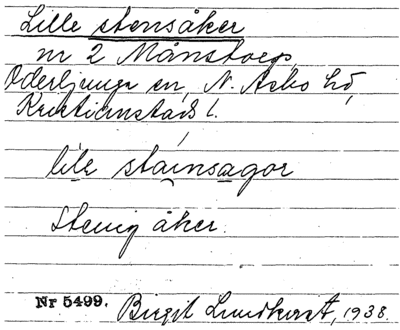 Lille stensåker
nr 2 Månstorp,
Oderljunga sn, N. Åsbo hd,
Kristianstads l.
lile stainsagor
Stenig åker.
Nr 5499. Birgit Lundkvist, 1938.